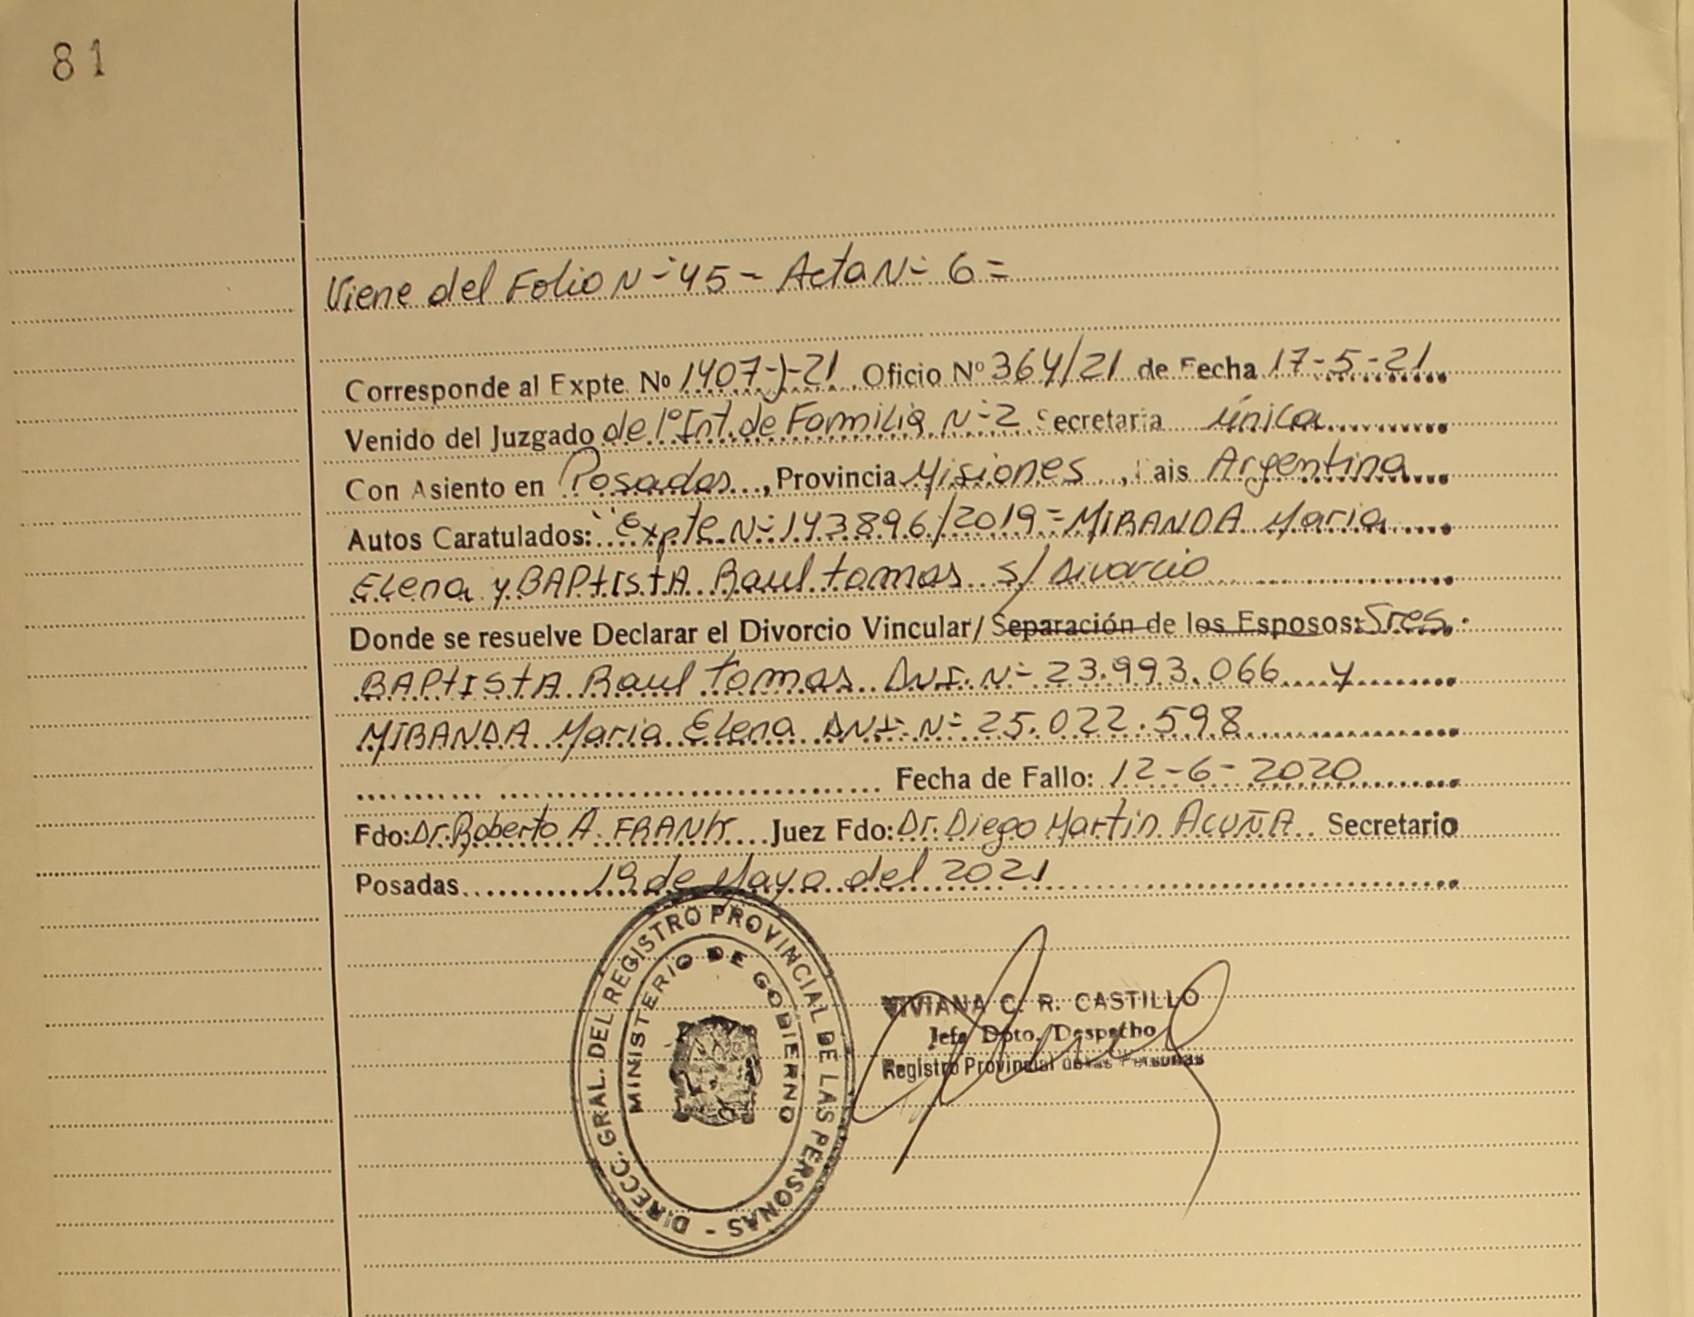 81
Viene del Folio N- 45 - Acta N- 6 =
Corresponde al Expte. Nº 1407-J-21 Oficio Nº 364/21 de Fecha 17-5-21
Venido del Juzgado de 1º Int. de Familia N- 2 Secretaria única
Con Asiento en Posadas, Provincia Misiones, Pais Argentina
Autos Caratulados: "Expte N- 143896/2019 = MIRANDA Maria
Elena y BAPtIStA Raul tomas s/ Divorcio
Donde se resuelve Declarar el Divorcio Vincular/ Separación de los Esposos: Sres.
BAPtIStA Raul tomas DNI. N- 23.993.066 y
MIRANDA Maria Elena DNI. N- 25.022.598
Fecha de Fallo: 12-6-2020
Fdo: Dr. Roberto A. FRANK Juez Fdo: Dr. Diego Martin ACUÑA Secretario
Posadas 19 de Mayo del 2021
DIRECC. GRAL. DEL REGISTRO PROVINCIAL DE LAS PERSONAS -
MINISTERIO DE GOBIERNO
VIVIANA C. R. CASTILLO
Jefa Dpto. Despacho
Registro Provincial de las Personas